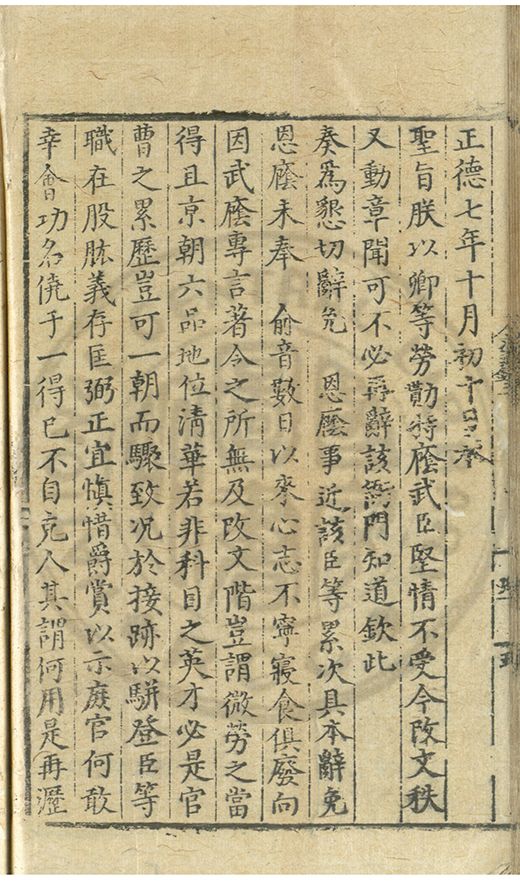 正德七年十月初十日奉
聖旨朕以卿等勞勩特廕武臣堅情不受今改文秩
又動章聞可不必再辭該衙門知道欽此
奏爲懇切辭免　恩廕事近該臣等累次具本辭免
恩廕未奉　俞音數日以來心志不寧寢食俱廢向
因武廕專言著令之所無及改文階豈謂微勞之當
得且京朝六品地位清華若非科目之英才必是官
曹之累歷豈可一朝而驟致况於接跡以駢登臣等
職在股肱義存匡弼正宜愼惜爵賞以示庻官何敢
幸會功名僥于一得已不自克人其謂何用是再瀝